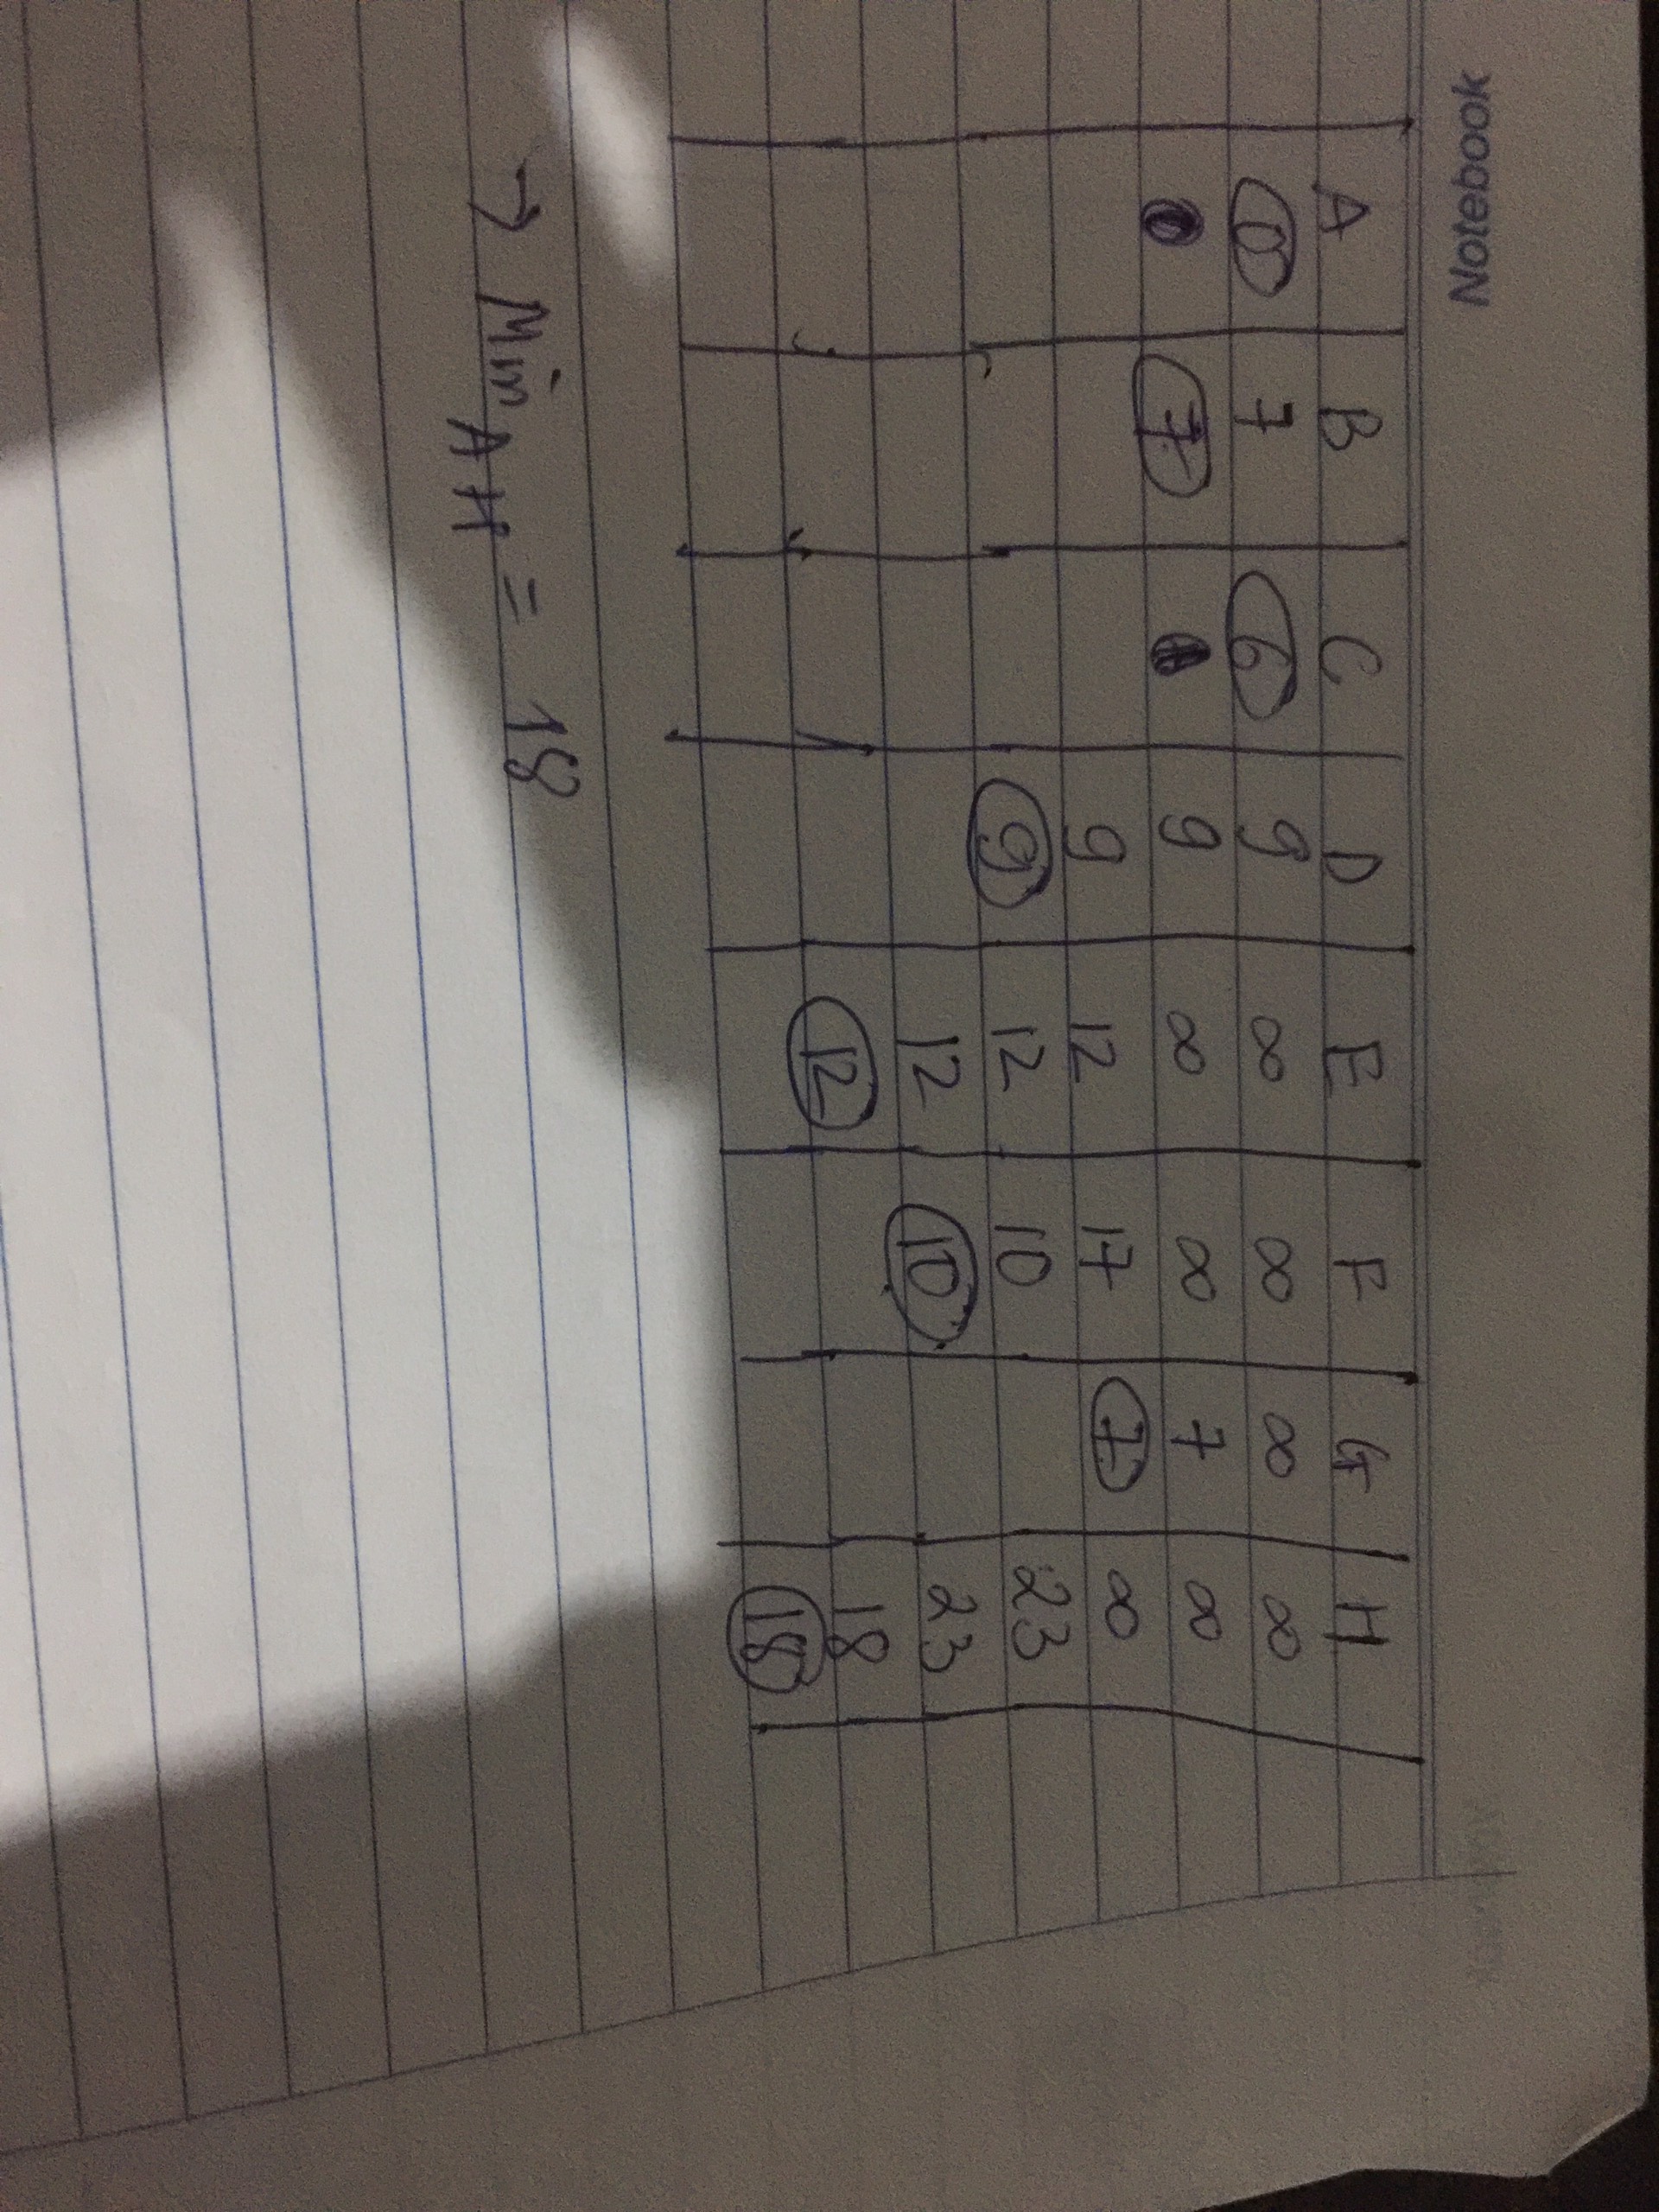 Notebook
A B C D E F G H
0 7 6 9 ∞ ∞ ∞ ∞
7 9 ∞ ∞ 7 ∞
9 12 17 7 ∞
9 12 10 23
12 10 23
12 18
18
→ Min AH = 18